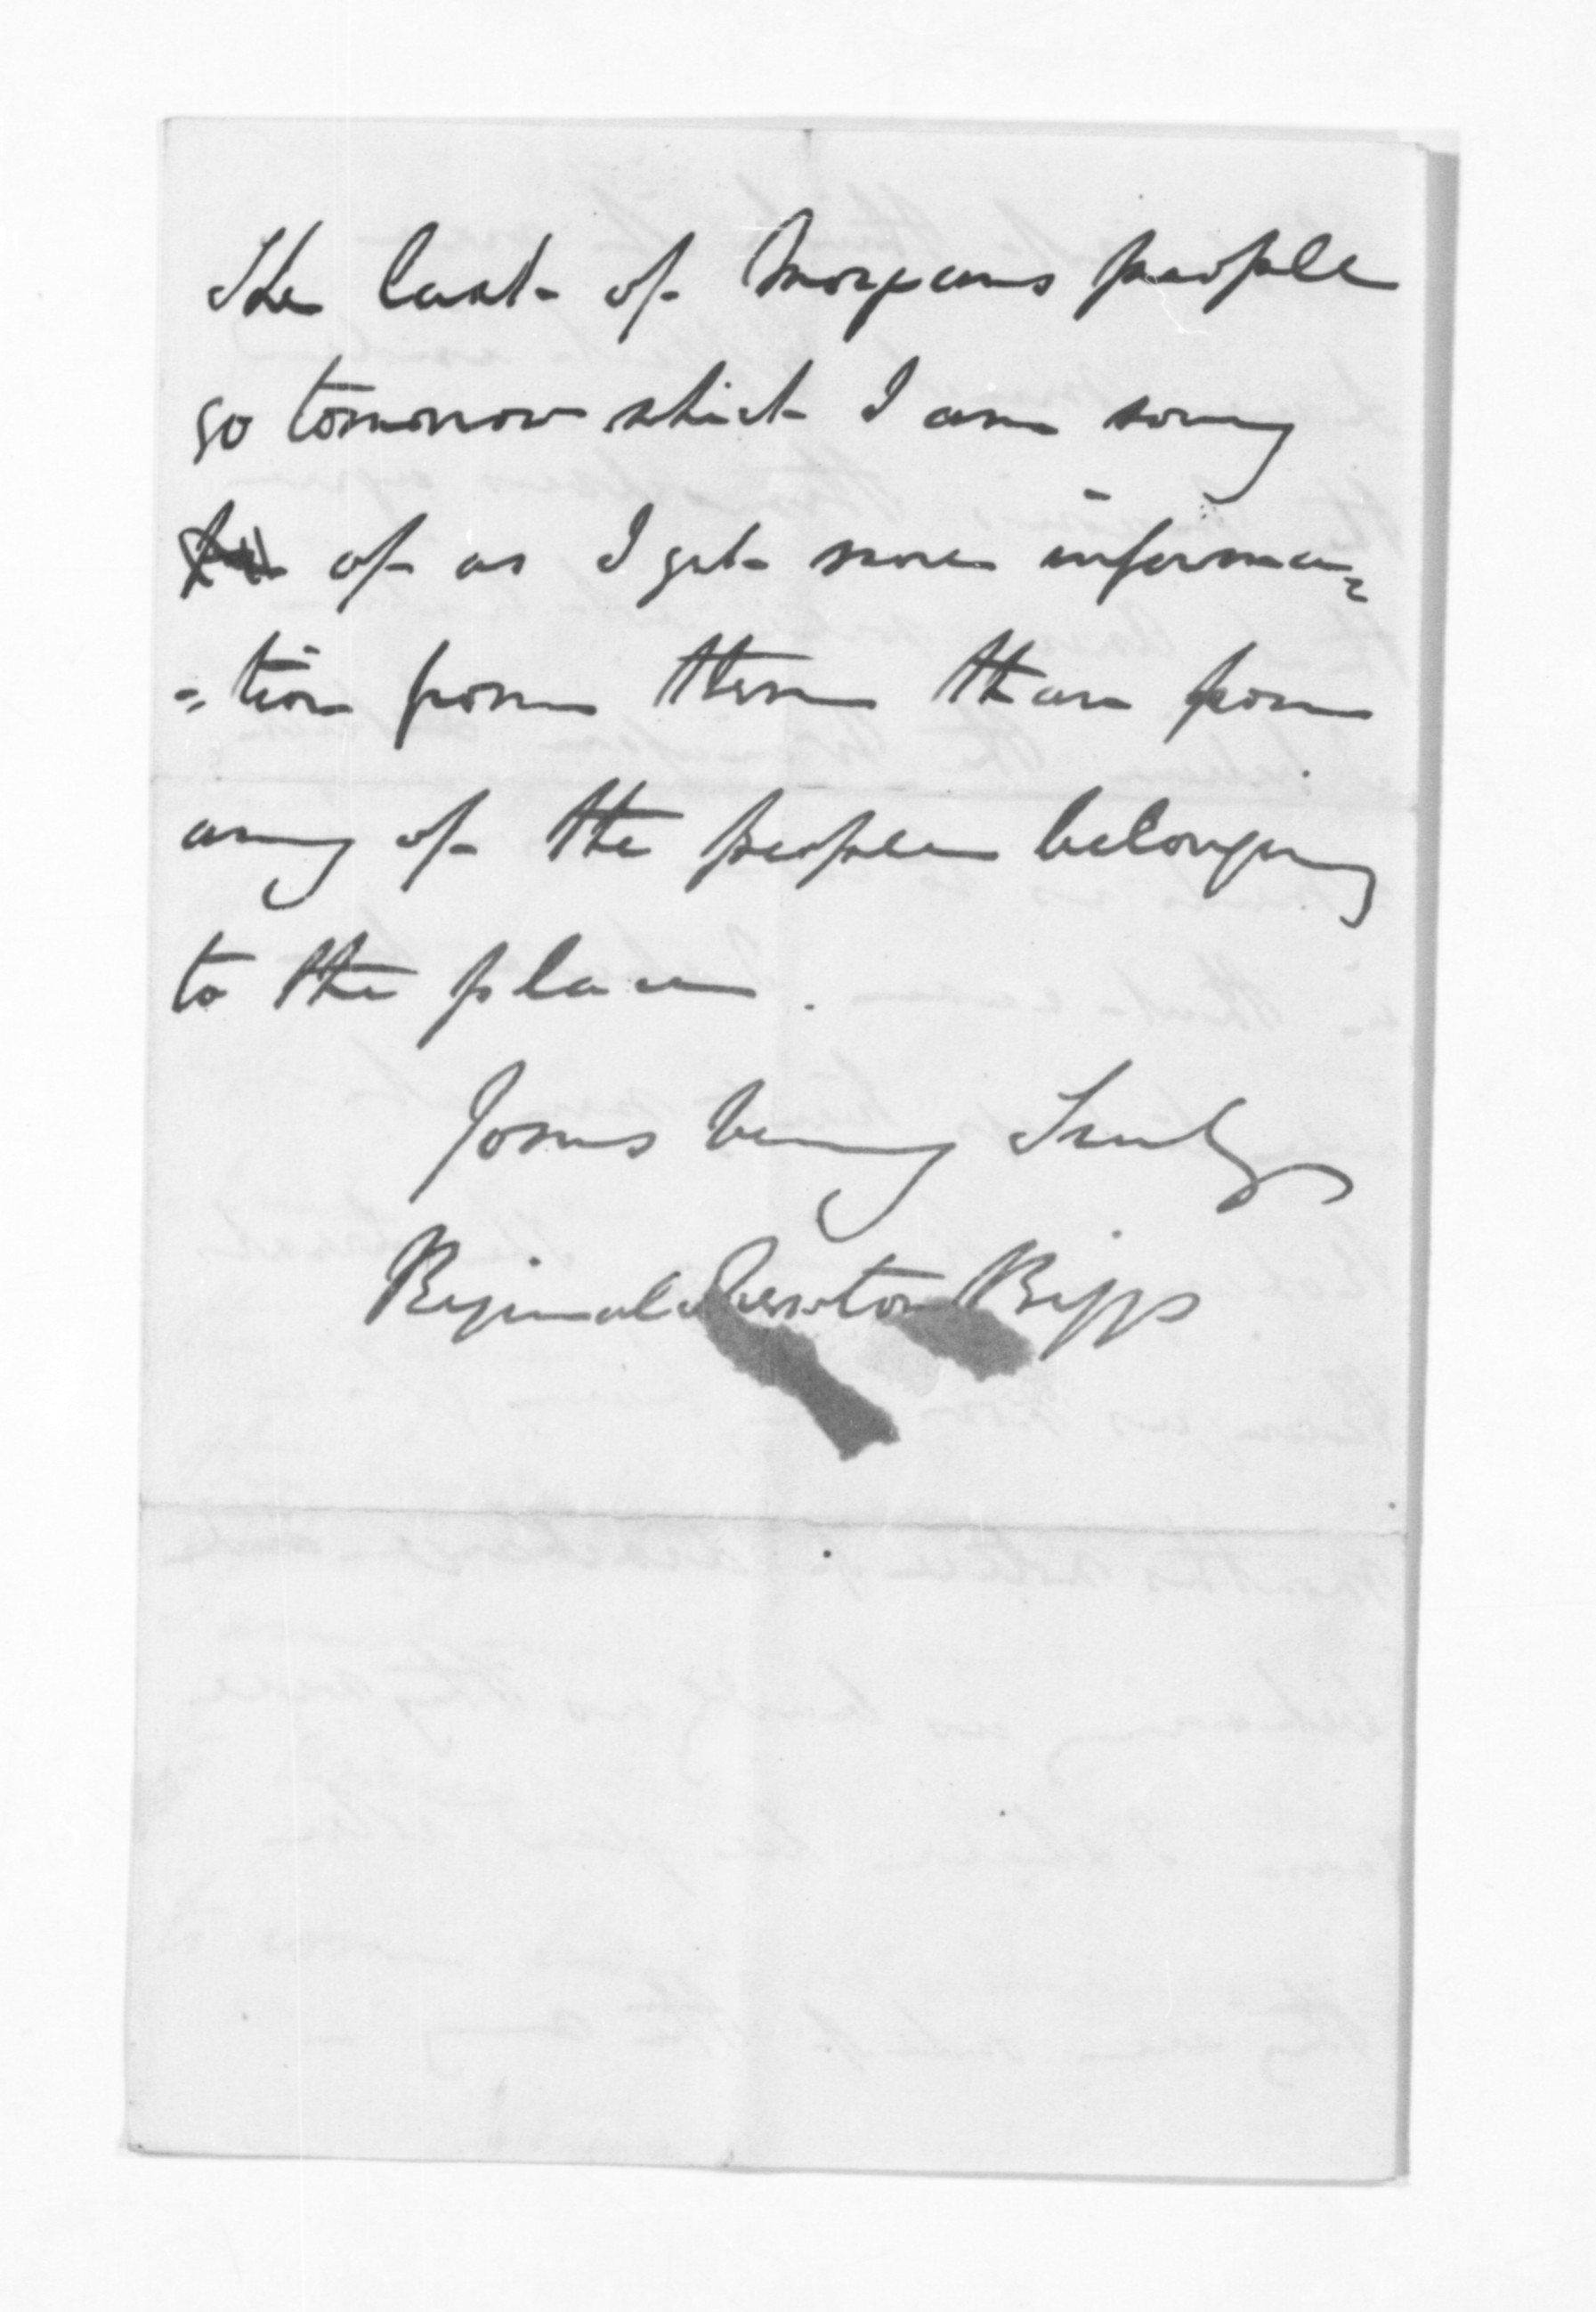 The last of Morgans people
go tomorrow which I am sorry
of as I get more informa=
=tion from them than from
any of the people belonging
to the place.
Yours very Truly
Reginald Newton Biggs